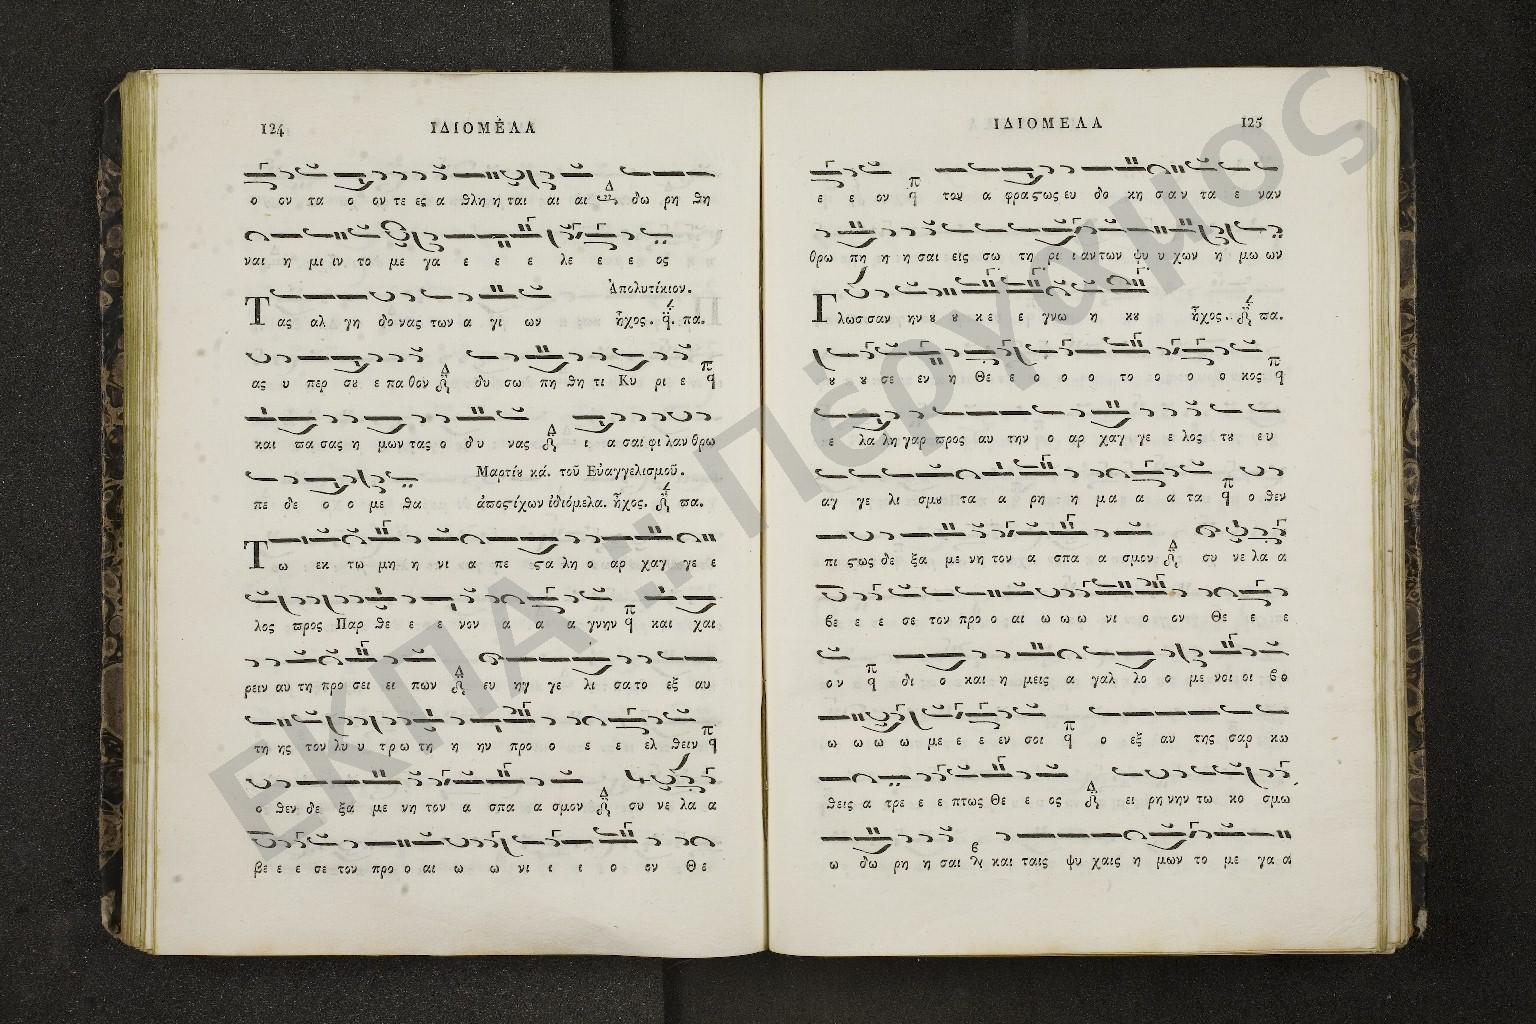 124 ΙΔΙΟΜΕΛΑ
ο ον τα ο ον τε ες α θλη η ται αι αι δω ρη θη
ναι η μι ιν το με γα ε ε ε λε ε ε ος
Ἀπολυτίκιον.
Τας αλ γη δο νας των α γι ων ἦχος. q. πα.
ας υ περ σου ε πα θον Δ δυ σω πη θη τι Κυ ρι ε π q
και πα σας η μων τας ο δυ νας Δ ι α σαι φι λαν θρω
Μαρτίου κά. τοῦ Εὐαγγελισμοῦ.
πε δε ο ο με θα ἀποστίχων ἰδιόμελα. ἦχος. πα.
Τω εκ τω μη η νι α πε στα λη ο αρ χαγ γε ε
λος προς Παρ θε ε ε νον α α α γνην π q και χαι
ρειν αυ τη προ σει ει πων Δ ευ ηγ γε λι σα το εξ αυ
τη ης τον λυ υ τρω τη η ην προ ο ε ε ελ θειν π q
ο θεν δε ξα με νη τον α σπα α σμον Δ συ νε λα α
βε ε ε σε τον προ ο αι ω ω νι ι ι ο ον Θε
ΙΔΙΟΜΕΛΑ 125
ε ε ον π q τον α φρα στως ευ δο κη σα ν τα ε ναν
θρω πη η η σαι εις σω τη ρι ι αν των ψυ υ χων η μω ων
Γλωσ σαν ην ου ου κ ε ε γνω η κου ἦχος. πα.
ου ου σε εν η Θε ε ο ο ο το ο ο ο κος π q
ε λα λη γαρ προς αυ την ο αρ χαγ γε ε λος του ευ
αγ γε λι σμου τα α ρη η μα α α τα π q ο θεν
πι στως δε ξα με νη τον α σπα α σμον Δ συ νε λα α
βε ε ε σε τον προ ο αι ω ω ω νι ο ον Θε ε ε
ον π q δι ο και η μεις α γαλ λο ο με νοι οι βο
ω ω ω ω με ε ε εν σοι π q ο εξ αυ της σαρ κω
θεις α τρε ε ε πτως Θε ε ος Δ ει ρη νην τω κο σμω
ω δω ρη η σαι και ταις ψυ χαις η μων το με γα α
ΕΚΠΑ :: Πέργαμος